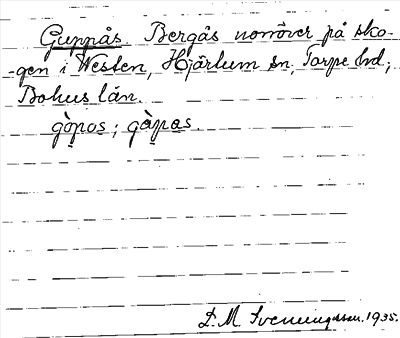 Guppås. Bergås norröver på sko-
-gen i Westen, Hjärtum sn, Torpe hd;
Bohus län.
gòpos; gàpas.
D. M. Svenningsson. 1935.